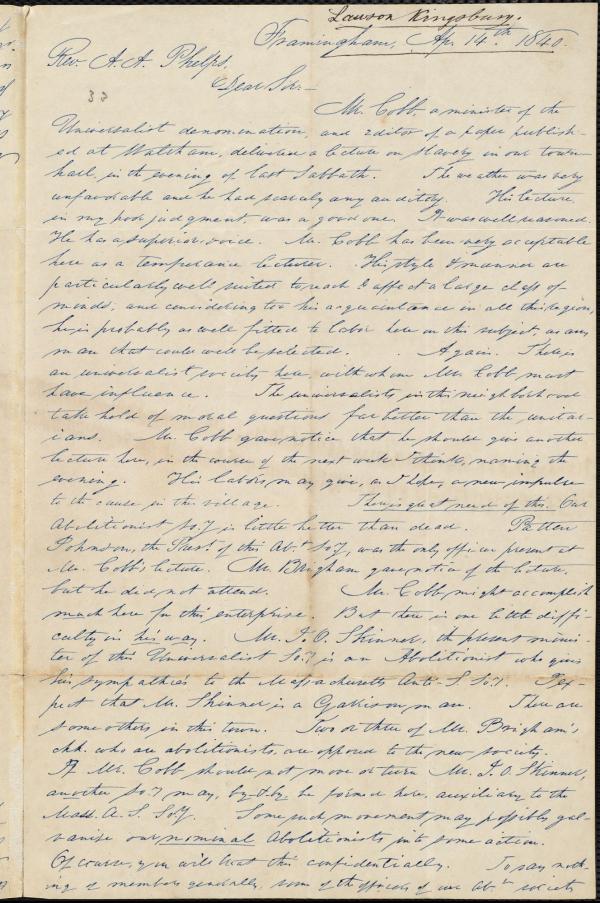 Lawson Kingsbury.
Framingham, Apr. 14th. 1840.
Rev. A. A. Phelps,
Dear Sir:—
33
Mr. Cobb, a minister of the
Universalist denomination, and editor of a paper publish-
ed at Waltham, delivered a lecture on slavery in our town
hall, in the evening of last Sabbath. The weather was very
unfavorable and he had scarcely any auditory. His lecture
in my poor judgment, was a good one. It was well reasoned.
He has a superior voice. Mr. Cobb has been very acceptable
here as a temperance lecturer. His style & manner are
particularly well suited to reach & affect a large class of
minds, and considering too his acquaintance in all this region,
he is probably as well fitted to labor here on this subject, as any
man that could well be selected. Again. There is
an universalist society here, with whom Mr. Cobb must
have influence. The universalists in this neighborhood
take hold of moral questions far better than the unitar-
ians. Mr. Cobb gave notice that he should give another
lecture here, in the course of the next week I think, naming the
evening. His labors, may give, as I hope, a new impulse
to the cause in this village. There is great need of this. Our
Abolitionist So.y is little better than dead. Patten
Johnson, the Prest. of this Abn. So.y, was the only officer present at
Mr. Cobb's lecture. Mr. Brigham gave notice of the lecture,
but he did not attend. Mr. Cobb, might accomplish
much here for this enterprise. But there is one little diffi-
culty in his way. Mr. I. O. Skinner, the present minis-
ter of this Universalist So.y is an Abolitionist who gives
his sympathies to the Massachusetts Anti-S. So.y. I ex-
pect that Mr. Skinner is a Garrison man. There are
some others in this town. Two or three of Mr. Brigham's
chh. who are abolitionists, are opposed to the new society.
If Mr. Cobb should not move or turn Mr. I. O. Skinner,
another So.y may, by & by be formed here, auxiliary to the
Mass. A. S. So.y. Some such movement may possibly gal-
vanise our nominal Abolitionists, into some action.
Of course, you will treat this confidentially. To say noth-
ing of members generally, some of the officers of our Abn. society